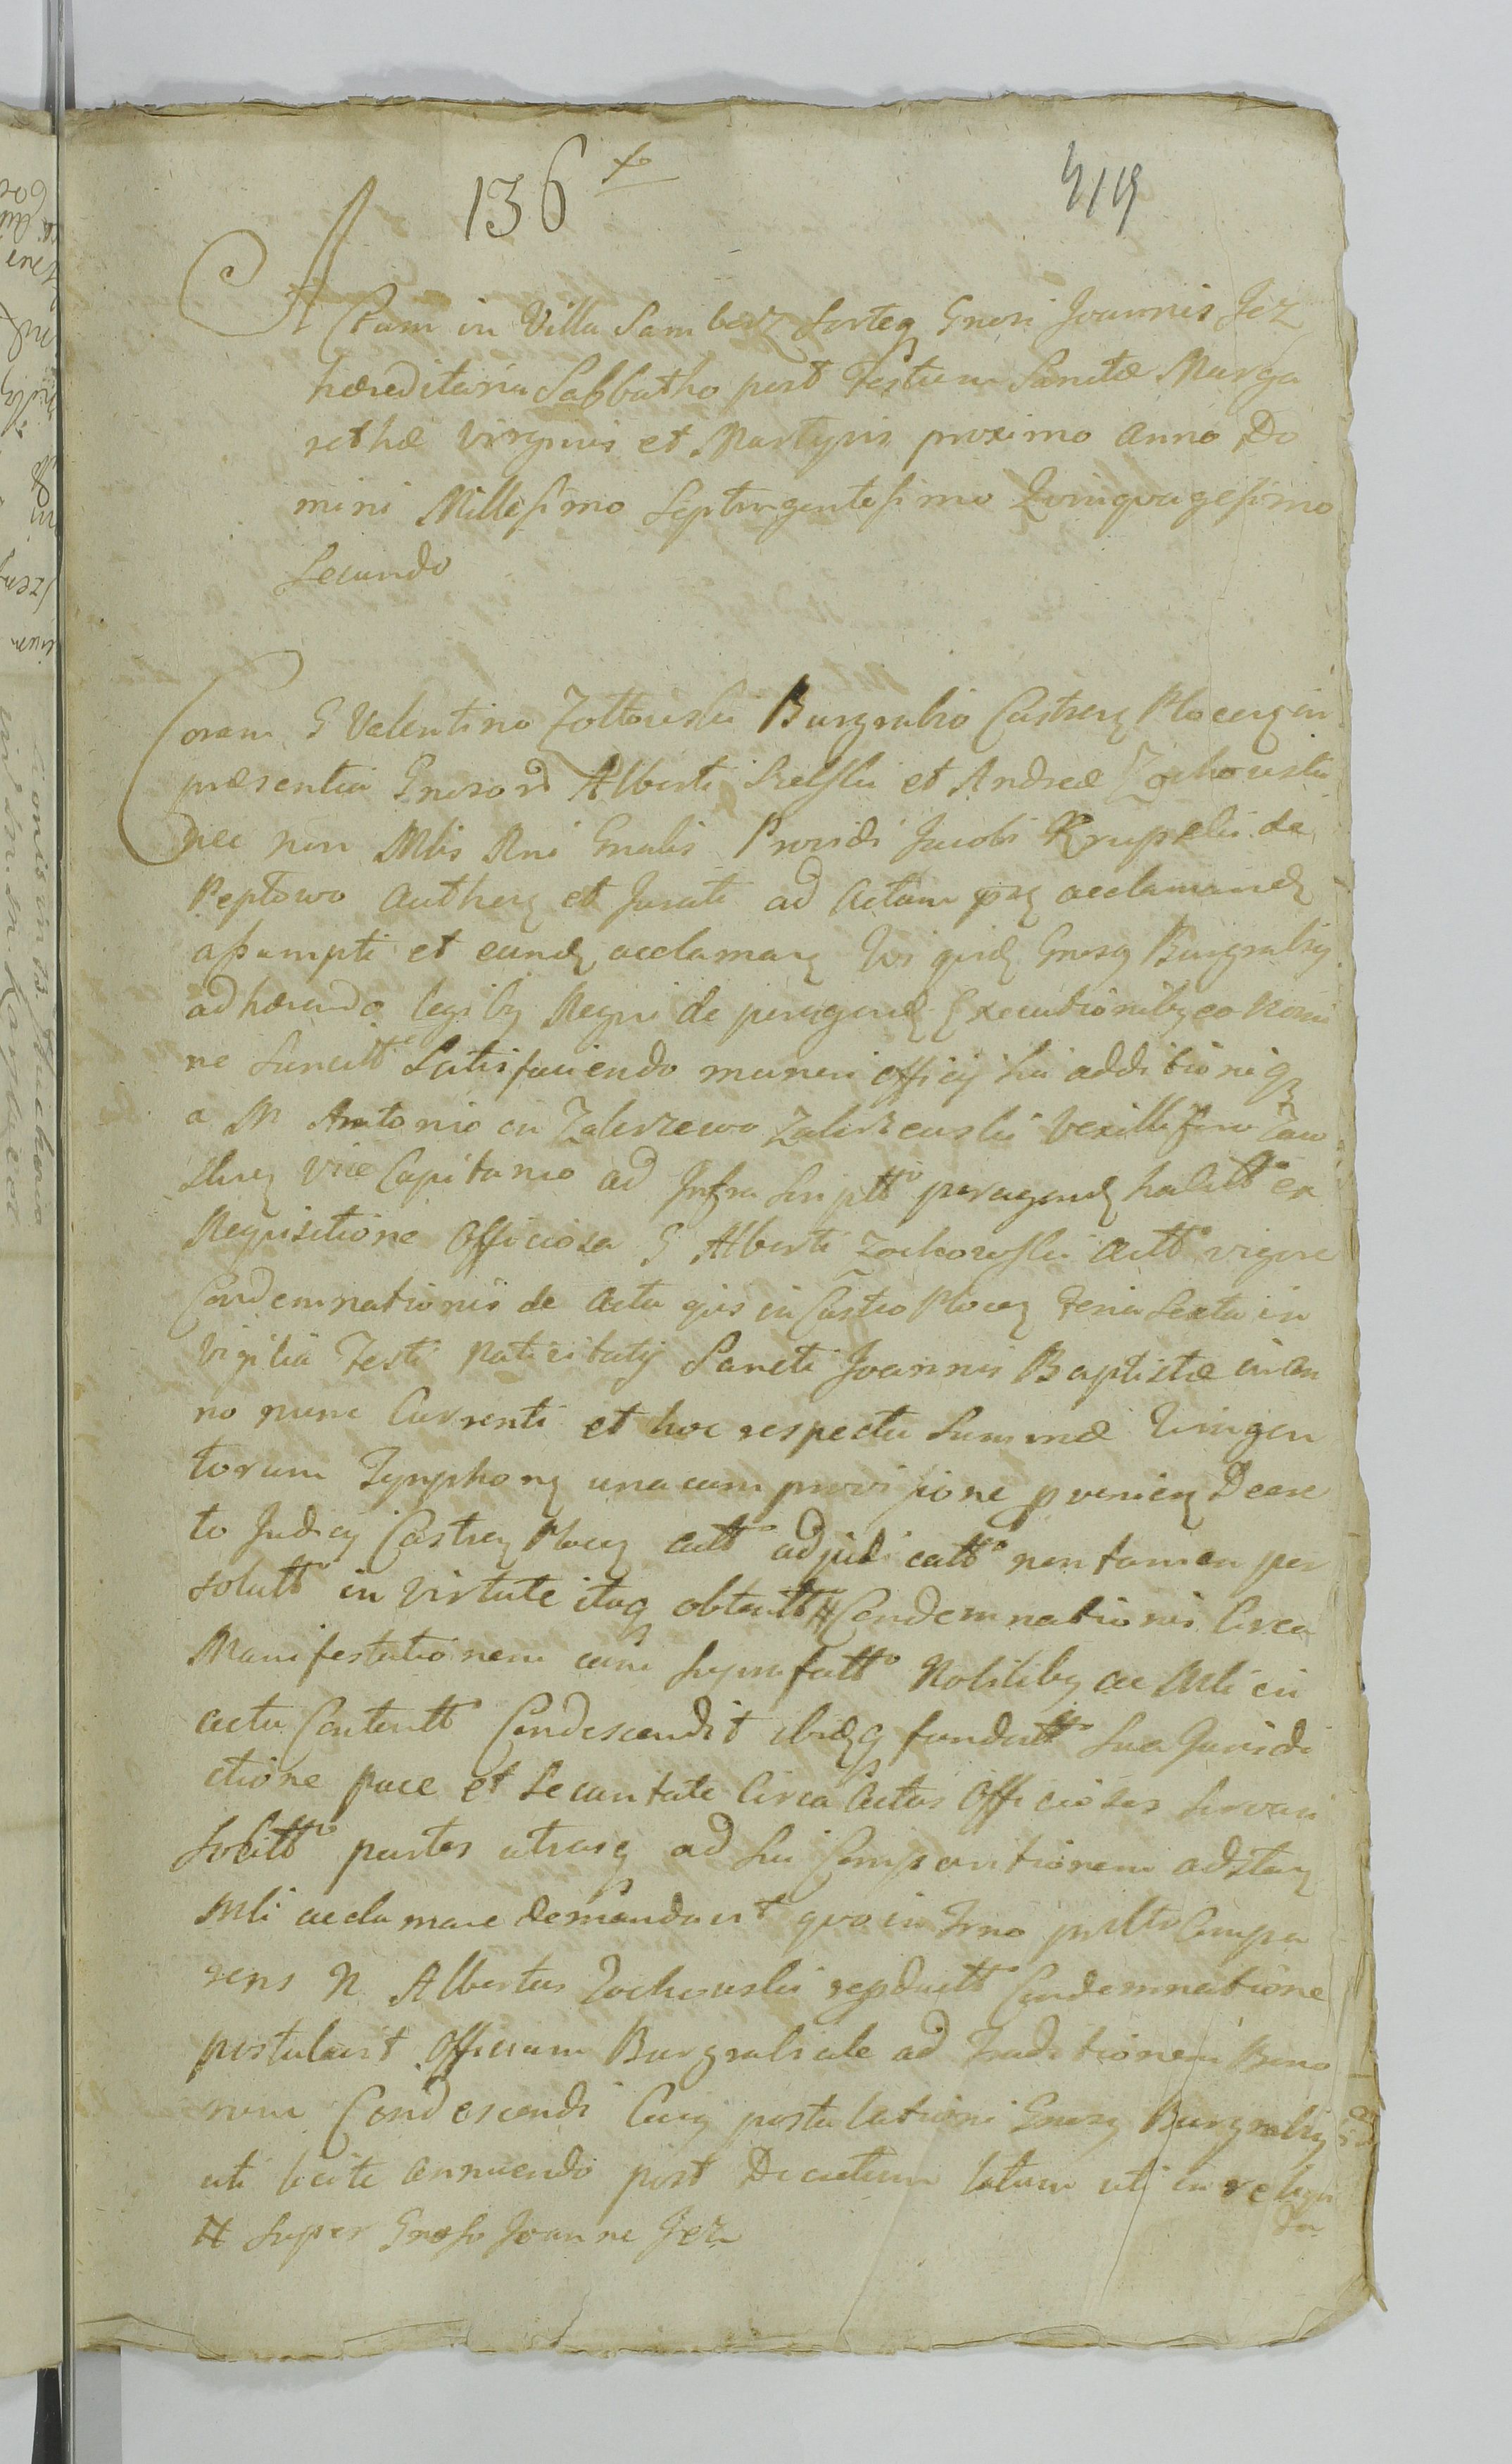 136
419
Actum in Villa Samborz Sorteq Gnosi Joannis Jez
hæreditaria Sabbatho post Festum Sanctæ Marga
rethæ Virginis et Martyris proximo Anno Do
mini Millesimo Septingentesimo Quinquagesimo
Secundo
Coram G Valentino Zołtowski Burgrabio Castren Plocen in
præsentia Gnsorđ Alberti Sielski et Andreæ Zochowski
nec non Mlis Rni Gnalis Providi Jacobi Krupski de
Peptowo Authen et Jurati ad Actum acclamand
assumpti et eund acclaman Qui quid Gnosq Burgrabiq
adhærendo legibq Regni de peragend Executionibq eo nomi
ne Sancitt Satisfaciendo muneri officij sui additioniq
a M Antonio in Zakrzewo Zakrzewski Vexillifero
Vice Capitaneo ad Infra scriptt peragend habitt ex
Requisitione Officiosa G Alberti Zochowski actt vigore
Condemnationis de Actu qvis in Castro Plocen Feria Sexta in
Vigilia Festi Nativitatij Sancti Joannis Baptistæ in An
no nunc Currenti et hoc respectu Summæ Quingen
torum Tynphon una cum provisione pvenien Decre
to Judicij Castren Plocen actt adjudicatt non tamen per
solutt in virtute itaq obtentt # Condemnationis Circa
Manifestationem cum suprafatt Nobilibq ac Mli in
actu Contentt Condescendit ibidq fundatt sua Jurisdi
ctione pace et Securitate Circa Actus Officiosos servari
solitt partes utrasq ad sui Comparitionem adstan
Mli acclamare demandavit qvo in Trno Compa
rens N Albertus Zochowski repductt Condemnatione
postulavit Officium Burgrabiale ad Traditionem Bono
rum Condescendi Cuiq postulationi Gnosq Burgrabiq
uti licite annuendo post Decretum latum uti in religi
# super Gnoso Joanne Jez